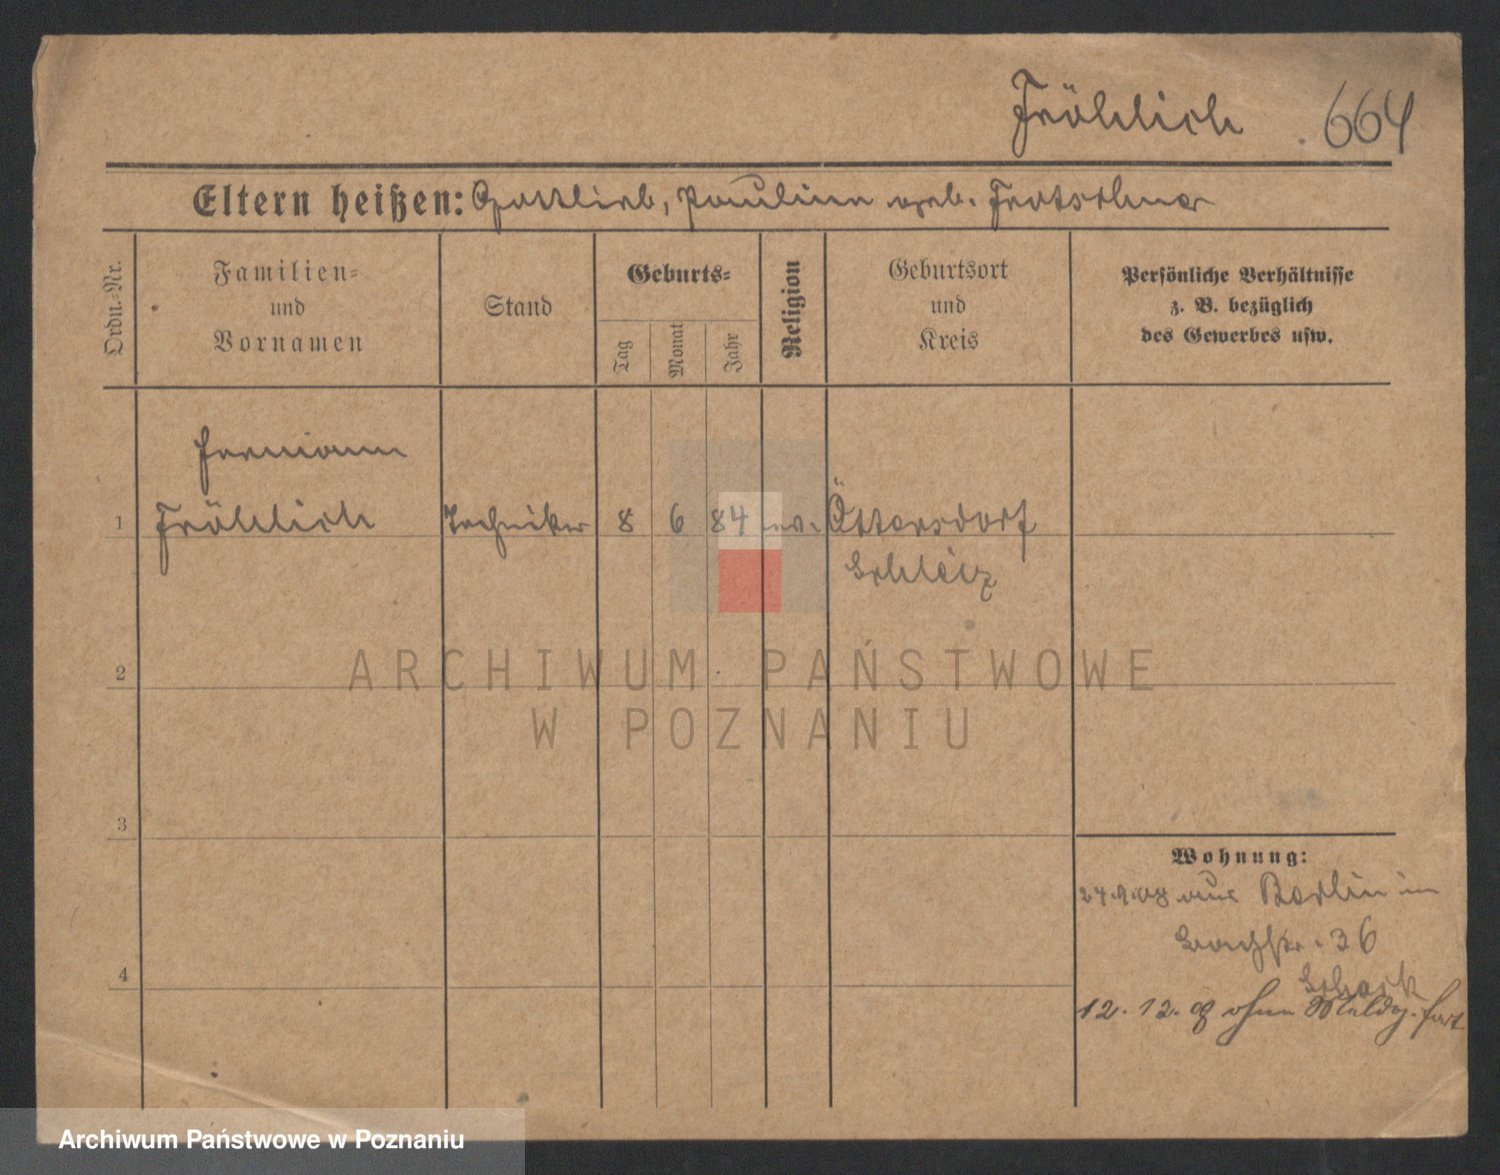 Fröhlich 664
Eltern heißen: Gottlieb, Pauline geb. Fertschner
Ordn.-Nr.
Familien-
und
Vornamen
Stand
Geburts-
Tag
Monat
Jahr
Religion
Geburtsort
und
Kreis
Persönliche Verhältnisse
z. B. bezüglich
des Gewerbes usw.
Hermann
1 Fröhlich Techniker 8 6 84 ev. Öttersdorf
Schleiz
2
3
4
ARCHIWUM PAŃSTWOWE
W POZNANIU
Wohnung:
24.9.08 aus Berlin in
36
Schack
12.12.8 ohne Meldg. fort
Archiwum Państwowe w Poznaniu